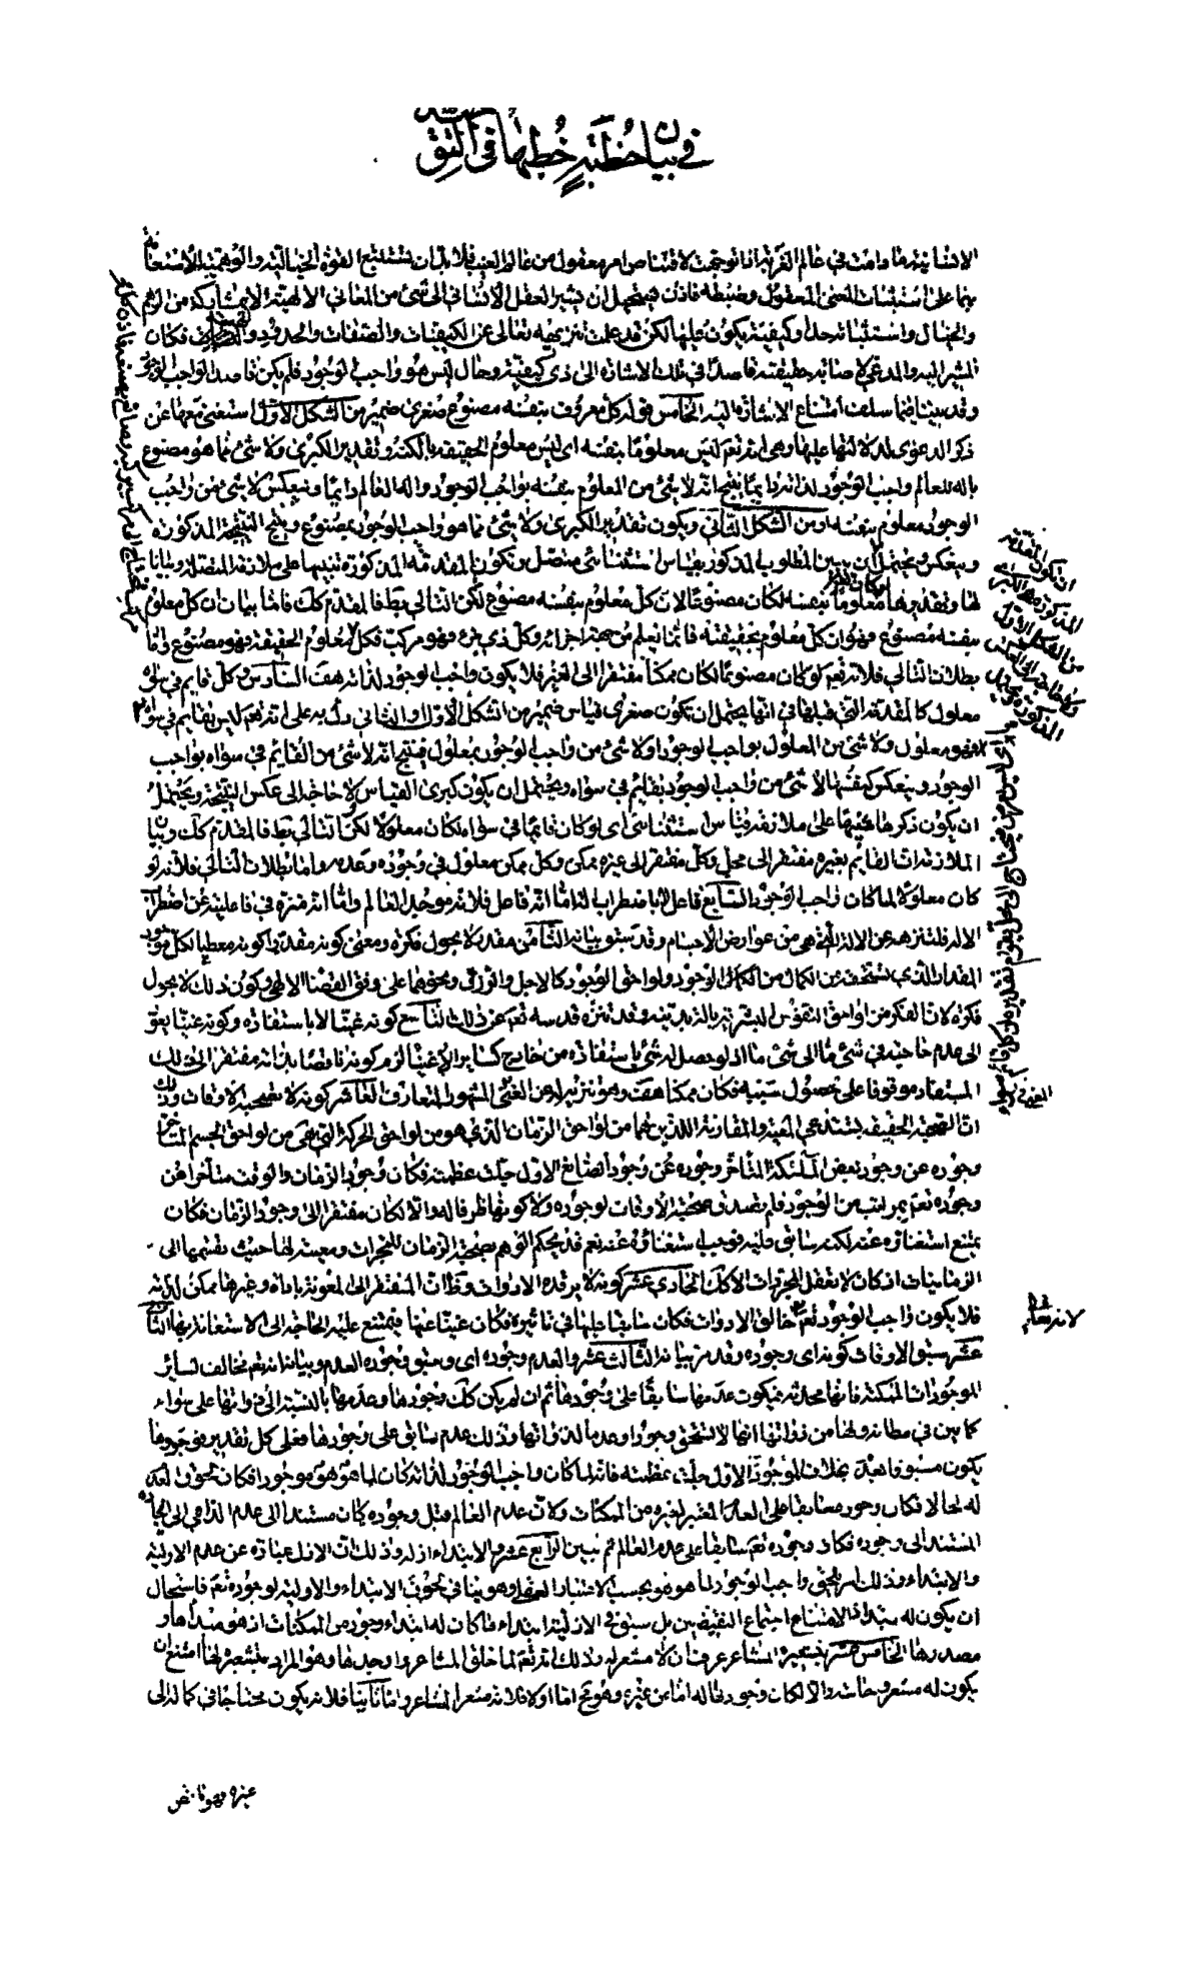 في بيان خطبة خطبها في التوحيد
الانسانية ما دامت في عالم الغربة اذا توجهت لاقتناص امر معقول من عالم الغيب فلا بد ان تستتبع القوة الخيالية والوهمية للاستعانة
بهما على استثبات المعنى المعقول وضبطه فاذن يستحيل ان يشير العقل الانساني الى شئ من المعاني الالهية الا بمشاركة من الوهم
والخيال واستثباته حدا وكيفية يكون عليها لكن قد علمت تنزيهه تعالى عن الكيفيات والصفات والحدود والهيئة فكان
المشير اليه والمدعي لاصابة حقيقته قاصدا في تلك الاشارة الى ذي كيفية وحال ليس هو واجب الوجود فلم يكن قاصدا لواجب الوجود
وقد بينا فيما سلف امتناع الاشارة اليه الخامس قوله كل معروف بنفسه مصنوع صغرى ضمير من الشكل الاول استغنى معها عن
ذكر الدعوى لدلالتها عليها وهى انه تعم ليس معلوما بنفسه اى ليس معلوم الحقيقة بالكنه وتقدير الكبرى ولا شئ مما هو مصنوع
باله للعالم واجب الوجود لذاته دايما ينتج انه لا شئ من المعلوم بنفسه بواجب الوجود واله العالم دايما وينعكس لا شئ من واجب
الوجود معلوم بنفسه او من الشكل الثاني ويكون تقدير الكبرى ولا شئ مما هو واجب الوجود بمصنوع وينتج النتيجة المذكورة
وينعكس ويحتمل ان يبين المطلوب المذكور بقياس استثنائي متصل وتكون المقدمة المذكورة تنبيها على ملازمة المتصلة وبيانا
لها وتقديرها لو كان تعم معلوما بنفسه لكان مصنوعا لان كل معلوم بنفسه مصنوع لكن التالي بط فالمقدم كك فاما بيان ان كل معلوم
بنفسه مصنوع فهو ان كل معلوم بحقيقته فانما يعلم من جهة اجزائه وكل ذي جزء فهو مركب فكل معلوم الحقيقة فهو مصنوع واما
بطلان التالي فلانه تعم لو كان مصنوعا لكان ممكنا مفتقرا الى الغير فلا يكون واجب الوجود لذاته هف السادس وكل قايم في سواه
معلول كالمقدمة التي قبلها في انها يحتمل ان يكون صغرى قياس ضمير من الشكل الاول او الثاني دل به على انه تعم ليس بقايم في سواه
فهو معلول ولا شئ من المعلول بواجب الوجود او لا شئ من واجب الوجود بمعلول فينتج انه لا شئ من القايم في سواه بواجب
الوجود وينعكس كنفسها لا شئ من واجب الوجود بقايم في سواه ويحتمل ان يكون كبرى القياس لا حاجة الى عكس النتيجة ويحتمل
ان يكون ذكرها تنبيها على ملازمة قياس استثنائي اى لو كان قايما في سواه لكان معلولا لكن التالي بط فالمقدم كك وبيان
الملازمة ان القايم بغيره مفتقر الى محل وكل مفتقر الى غيره ممكن وكل ممكن معلول في وجوده وعدمه واما بطلان التالي فلانه لو
كان معلولا لما كان واجب الوجود السابع فاعل لا باضطراب الة اما انه فاعل فلانه موجد العالم واما انه منزه في فاعليته عن اضطراب
الالة فلتنزهه عن الالة التي هى من عوارض الاجسام وقد سبق بيانه الثامن مقدر لا بجول فكرة ومعنى كونه مقدرا كونه معطيا لكل موجود
المقدار الذي يستحقه من الكمال من الكمال الوجود ولواحق الوجود كالاجل والرزق ونحوهما على وفق القضا الالهي وكون ذلك لا بجول
فكرة لان الفكر من لواحق النفوس البشرية بالة بدنية وقد تنزه قدسه تعم عن ذلك التاسع كونه غنيا لا باستفادة وكونه غنيا يعود
الى عدم حاجته في شئ ما الى شئ ما اذ لو حصل له شئ باستفادة من خارج كساير الاغنيا لزم كونه ناقصا بذاته مفتقرا الى ذلك
المستفاد موقوفا على حصول سببه فكان ممكنا هف وهو تنزيه له عن الغنى المشهور المتعارف العاشر كونه لا تصحبه الاوقات وذلك
ان الصحبة الحقيقية تستدعي المعية والمقارنة اللذين هما من لواحق الزمان الذي هو من لواحق الحركة التي هى من لواحق الجسم المتاخر
وجوده عن وجود بعض الملائكة المتاخر وجوده عن وجود الصانع الاول جلت عظمته فكان وجود الزمان والوقت متاخرا عن
وجوده تعم بمراتب من الوجود فلم يصدق صحبة الاوقات لوجوده ولا كونها ظرفا له والا لكان مفتقرا الى وجود الزمان فكان
يمتنع استغناؤه عنه لكنه سابق عليه فوجب استغناؤه عنه نعم قد يحكم الوهم بصحبة الزمان للمجردات ومعيته لها حيث نقسمها الى
الزمانيات اذ كان لا تعقل المجردات الا كك الحادي عشر كونه لا يرفده الادوات وظ ان المفتقر الى المعونة باداة وغيرها ممكن لذاته
فلا يكون واجب الوجود لانه تعالى خالق الادوات فكان سابقا عليها في تاثيره فكان غنيا عنها فيمتنع عليه الحاجة الى الاستعانة بها الثاني
عشر سبق الاوقات كونه اى وجوده وقد مر بيانه الثالث عشر والعدم وجوده اى وسبق وجوده العدم وبيانه انه تعم مخالف لسائر
الموجودات الممكنة فانها محدثة فيكون عدمها سابقا على وجودها ثم ان لم يكن كك وجودها وعدمها بالنسبة الى ذواتها على سواء
كما بين في مظانه ولها من ذواتها انها لا تستحق وجودا وعدما لذواتها وذلك عدم سابق على وجودها فعلى كل تقدير فوجودها
يكون مسبوقا بعدم بخلاف الموجود الاول جلت عظمته فانه لما كان واجب الوجود لذاته كان لما هو هو موجودا فكان لحوق العدم
له محالا فكان وجوده سابقا على العدم المعتبر لغيره من الممكنات ولان عدم العالم قبل وجوده كان مستندا الى عدم الداعي الى ايجاده
المستند الى وجوده فكان وجوده تعم سابقا على عدم العالم ثم تبين الرابع عشر والابتداء ازله وذلك ان الازل عبارة عن عدم الاولية
والابتداء وذلك امر يلحق واجب الوجود لما هو هو بحسب الاعتبار العقلي وهو ينافي لحوق الابتداء والاولية لوجوده تعم فاستحال
ان يكون له مبتدأ لامتناع اجتماع النقيضين بل سبق في الازلية ابتداء ما كان له ابتداء وجود من الممكنات اذ هو مبدأها و
مصدرها الخامس عشر بتشعيره المشاعر عرف ان لا مشعر له وذلك انه تعم لما خلق المشاعر واوجدها وهو المراد بتشعيره لها امتنع ان
يكون له مشعر وحاسة والا لكان وجودها له اما من غيره وهو مح اما اولا فلانه مشعر المشاعر واما ثانيا فلانه يكون محتاجا في كماله الى
غيره فهو ناقص
ان تكون المقدمة
المذكورة هى الكبرى
من الشكل الاول
لانه تعالى